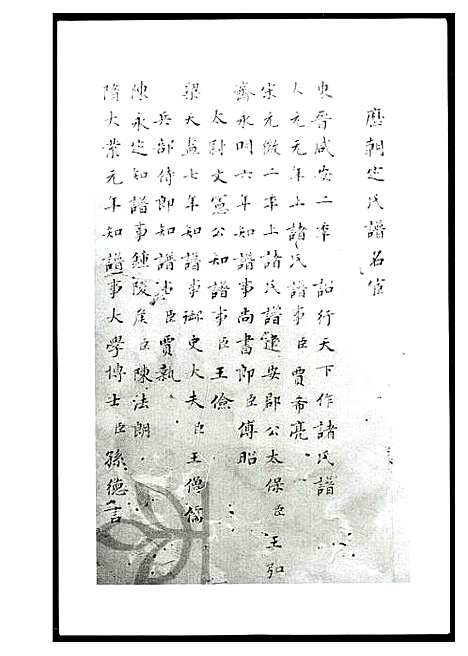 歷朝定氏譜名宦
東晉咸安二年 詔行天下作諸氏譜
太元元年上諸氏譜事臣賈希亮
宋元徽二年上諸氏譜建安郡公太保臣王弘
齊永明六年知譜事尚書郎臣傅昭
太尉文憲公知譜事臣王儉
梁天監七年知譜事御史大夫臣王僧儒
兵部侍郎知譜臣賈執
陳永定知譜事鍾陵侯臣陳法朗
隋大業元年知譜事大學博士臣孫德言